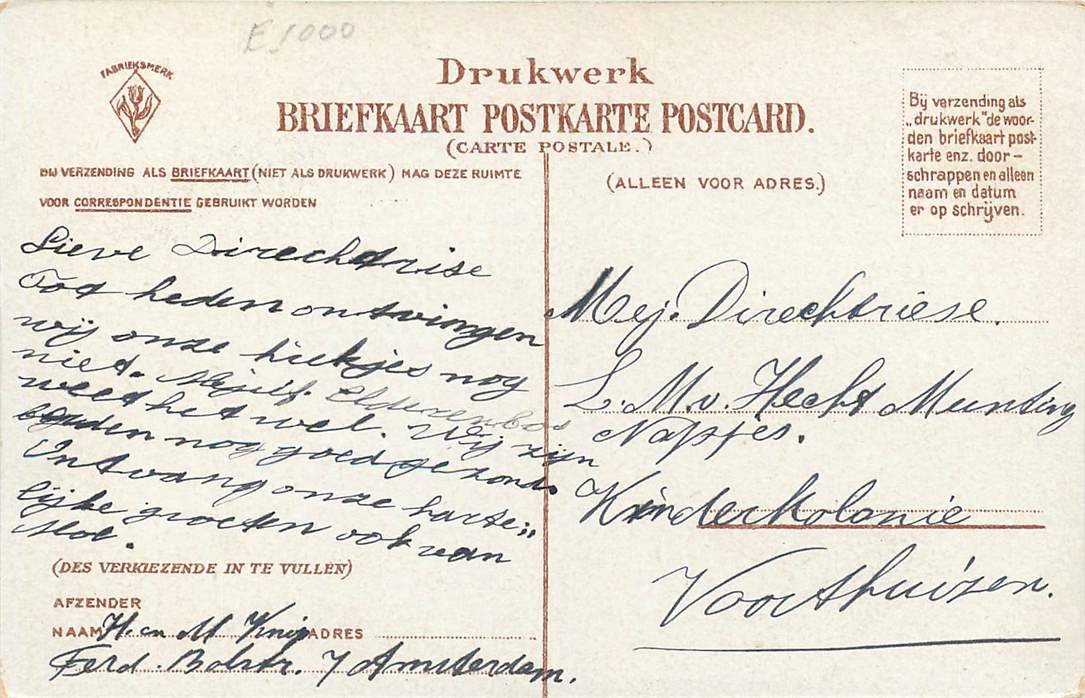 E 1000
FABRIEKSMERK
Drukwerk
BRIEFKAART POSTKARTE POSTCARD.
(CARTE POSTALE.)
Bij verzending als
„drukwerk" de woor-
den briefkaart post-
karte enz. door-
schrappen en alleen
naam en datum
er op schrijven.
BIJ VERZENDING ALS BRIEFKAART (NIET ALS DRUKWERK) MAG DEZE RUIMTE
VOOR CORRESPONDENTIE GEBRUIKT WORDEN
(ALLEEN VOOR ADRES.)
Lieve Direchtrise
Tot heden ontvingen
wij onze kiekjes nog
niet.
weet het wel. Wij zijn
beiden nog goed gezond.
Ontvang onze harte„
lijke groeten ook van
Moe.
(DES VERKIEZENDE IN TE VULLEN)
AFZENDER
NAAM H. en M Knip ADRES
Ferd. Bolstr. 7 Amsterdam.
Mej. Direchtriese.
L. M. v. Hecht Munting
Napjes.
Kinderkolonie
Voorthuizen.